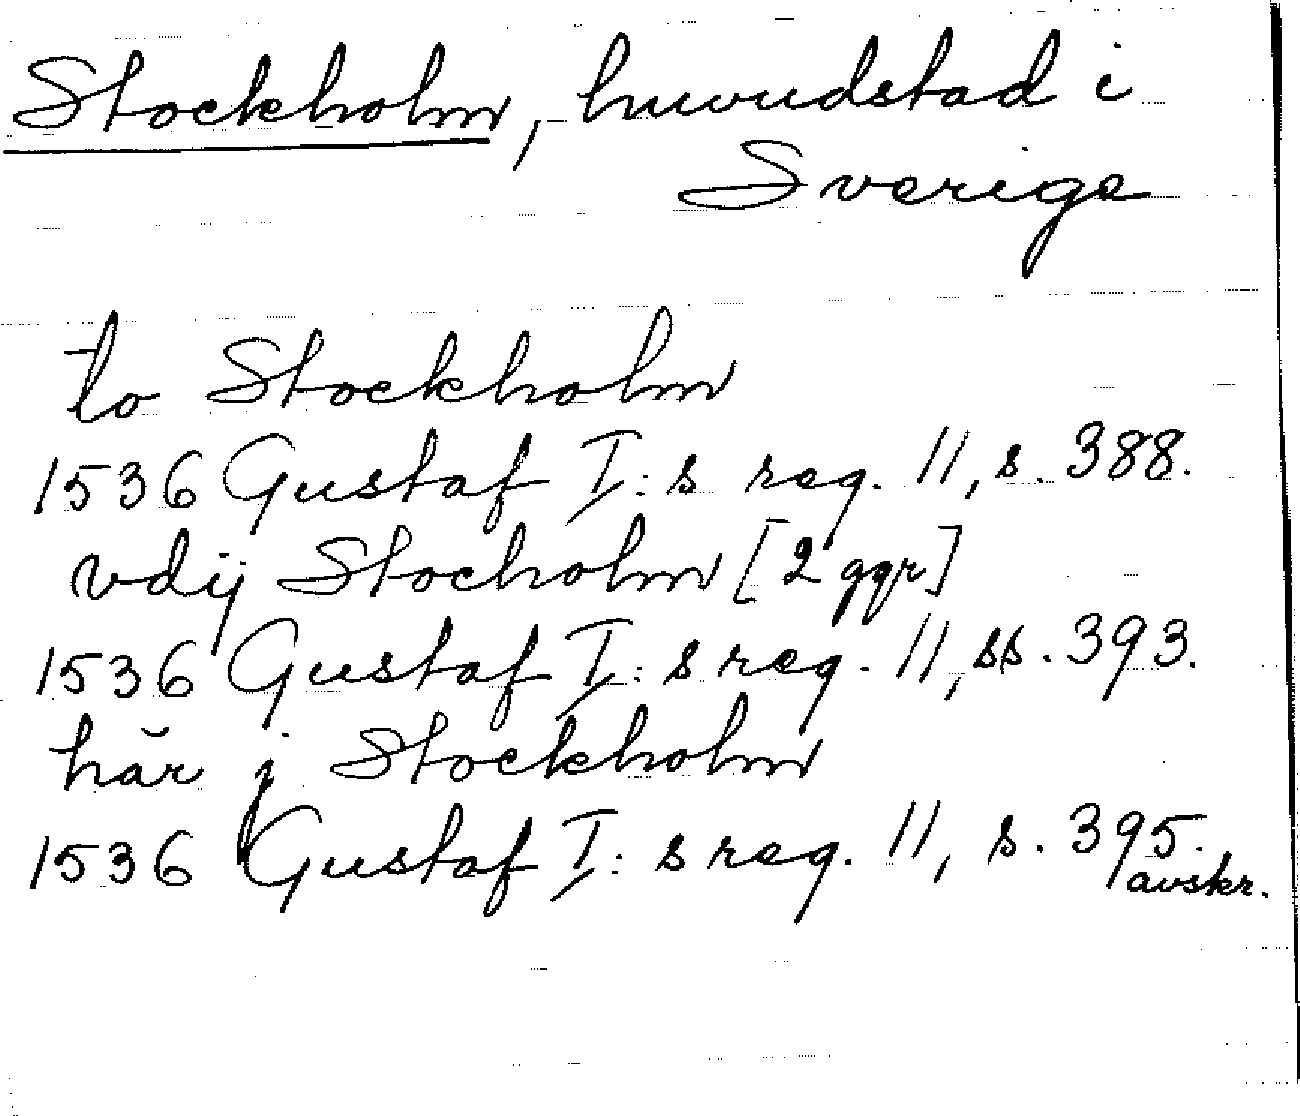 Stockholm, huvudstad i
Sverige
to Stockholm
1536 Gustaf I:s reg. 11, s. 388.
vdij Stocholm [2 ggr]
1536 Gustaf I:s reg. 11, ss. 393.
här j Stockholm
1536 Gustaf I:s reg. 11, s. 395.
avskr.